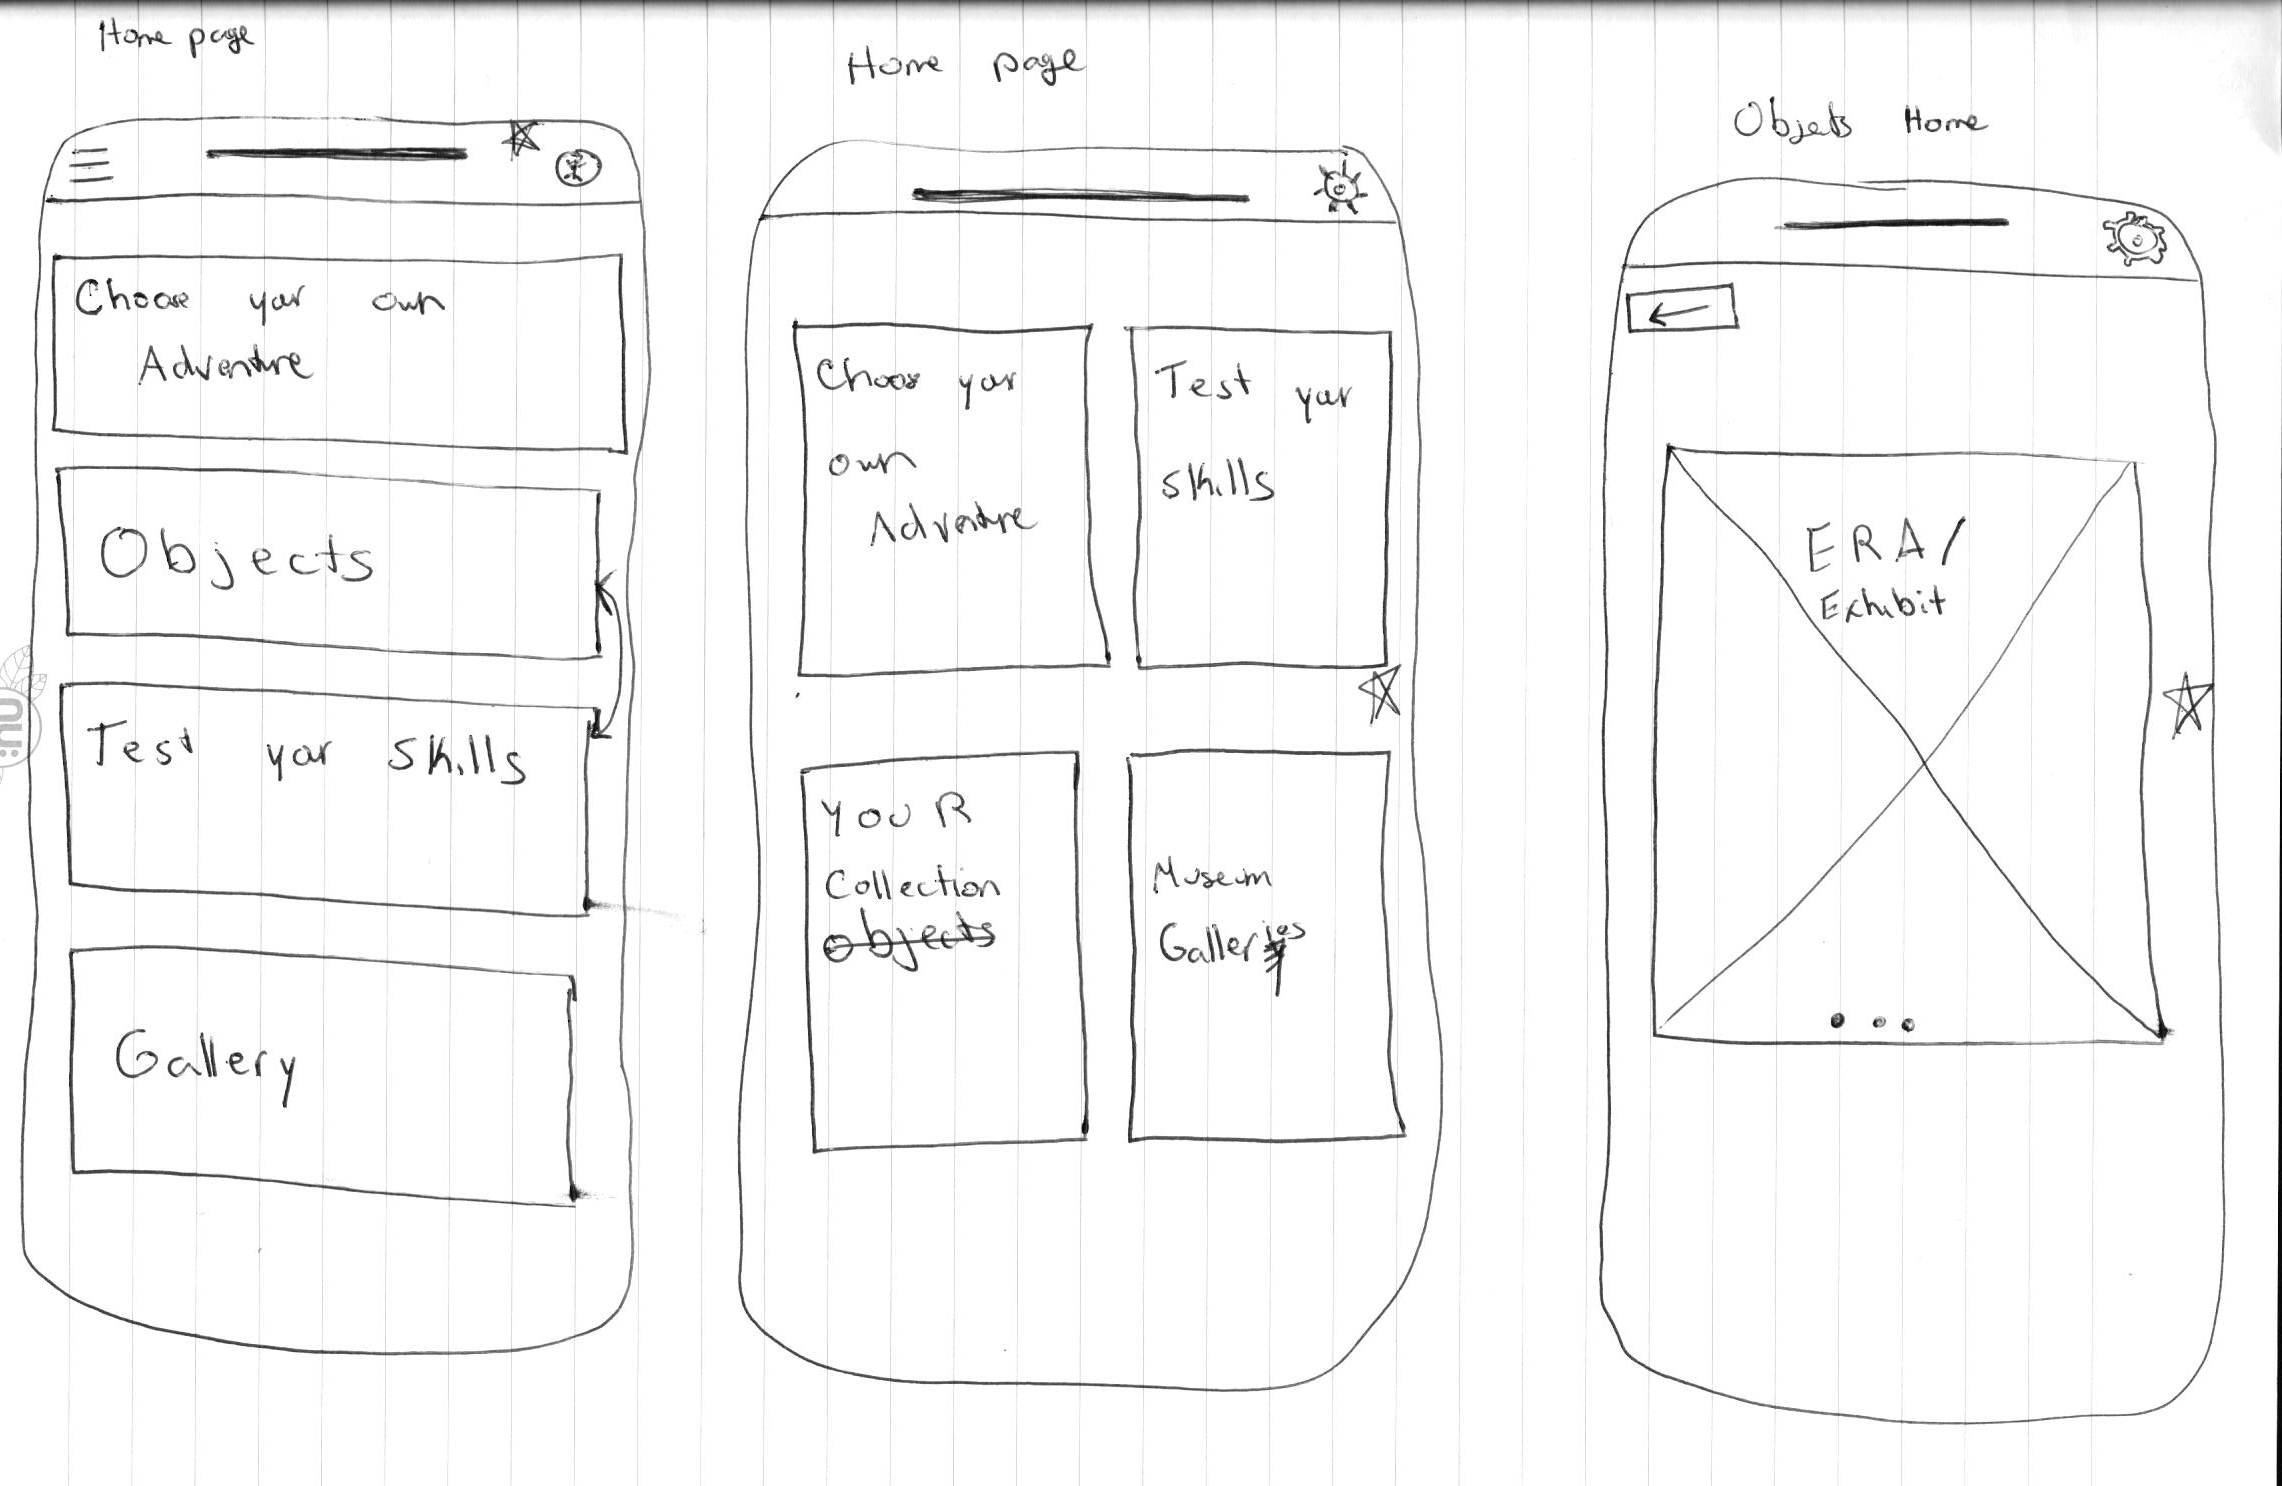 Home page
Choose your own
Adventure
Objects
Test your skills
Gallery
Home page
Choose your
own
Adventure
Test your
skills
YOUR
Collection
Objects
Museum
Galleries
Objects Home
ERA/
Exhibit
nu: